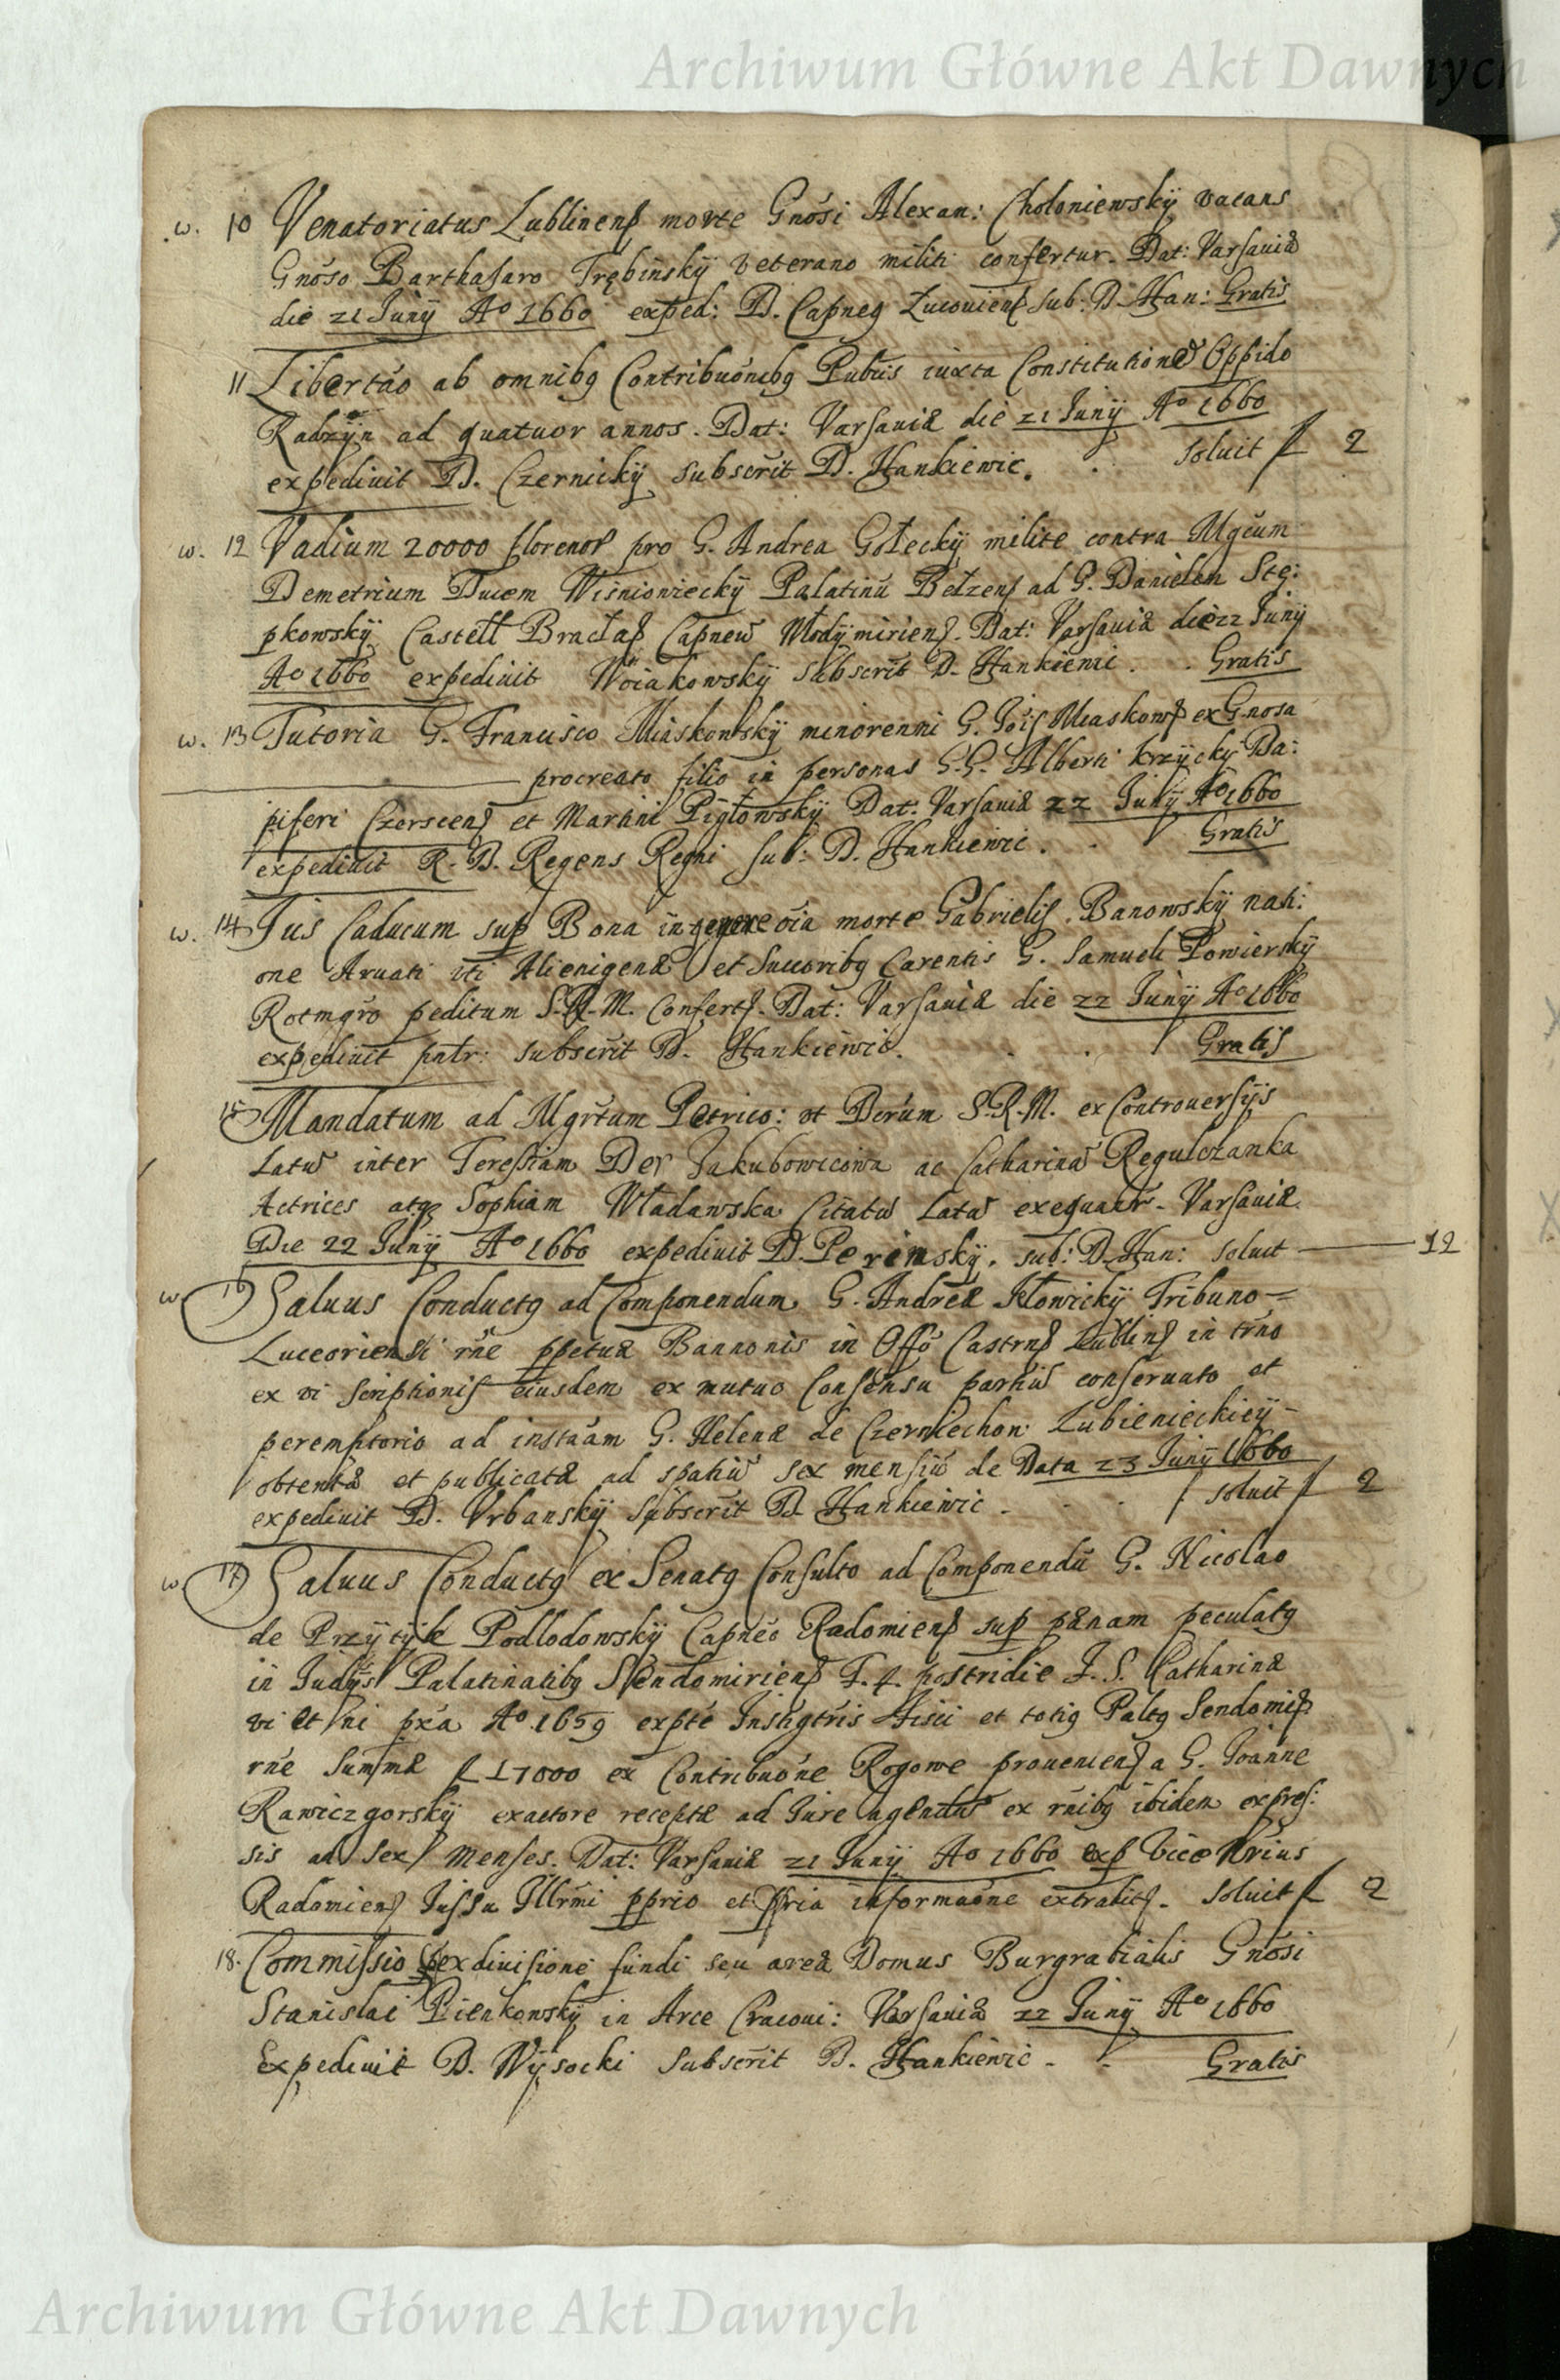 Archiwum Główne Akt Dawnych
w. 10 Venatoriatus Lublinens morte Gnosi Alexan: Choloniewskÿ vacans
Gnoso Barthasaro Trębinskÿ veterano militi confertur. Dat: Varsaviæ
die 21 Junÿ Aº 1660 exped: D. Capneg Lucoviens sub: D. Han: Gratis
11 Libertao ab omnibg Contribuonibg Publis iuxta Constitutione Oppido
Radzÿn ad quatuor annos. Dat: Varsaviæ die 21 Junÿ Aº 1660
expedivit D. Czernickÿ subscrit D. Hankiewic. soluit f 2
w. 12 Vadium 20000 florenor pro G. Andrea Gołeckÿ milite contra Mgcum
Demetrium Ducem Wisniowieckÿ Palatinu Bełzens ad G. Danielem Stę:
pkowskÿ Castell Bracłas Capneu Włodÿmiriens. Dat: Varsaviæ die 22 Junÿ
Aº 1660 expedivit Woiakowskÿ subscrit D. Hankiewi. Gratis
w. 13 Tutoria G. Francisco Miaskowskÿ minorenni G. Jois Miaskows ex Gnosa
procreato filio in personas G.G. Alberti krzÿckÿ Da:
piferi Czerscens et Martini Pigłowskÿ Dat: Varsaviæ 22 Junÿ Aº 1660
expedivit R. D. Regens Regni sub: D. Hankiewic. Gratis
w. 14 Jus Caducum sup Bona in genere oia morte Gabrielis Banowskÿ nati:
one Aruati uti Alienigenæ et Succoribg Carentis G. Samueli Powierskÿ
Rotmgro peditum S.R.M. Conferts. Dat: Varsaviæ die 22 Junÿ Aº 1660
expedivit patr: subscrit D. Hankiewic. Gratis
15 Mandatum ad Mgrtum Petrico: ut Derum S.R.M. ex Controversÿs
Latu inter Teressiam Der Jakubowicowa ac Catharina Regulczanka
Actrices atq Sophiam Władawska Citatu Latu exequatr. Varsaviæ
Die 22 Junÿ Aº 1660 expedivit D. Perinskÿ. sub: D. Han: soluit 12
w. 16 Saluus Conductg ad Componendum G. Andreæ Kłowickÿ Tribuno
Luceoriensi rne ppetuæ Bannonis in Offo Castrns Lublins in trno
ex vi scriptionis eiusdem ex mutuo Consensu partiu conservato et
peremptorio ad instaam G. Helenæ de Czerniechon Lubienieckiey
obtentæ et publicatæ ad spatiu sex mensiu de Data 23 Junÿ 1660
expedivit D. Vrbanskÿ subscrit D Hankiewic. soluit f 2
w 17 Saluus Conductg ex Senatg Consulto ad Componendu G. Nicolao
de Przÿtÿk Podlodowskÿ Capneo Radomiens sup pænam peculatg
in Judÿs Palatinatibg Sendomiriens F. 4. postridie F. S. Catharinæ
vi et ni pxa Aº 1659 expte Instigtris Fisci et totig Paltg Sendomis
rne Summæ f 17000 ex Contribuone Pogowe proveniens a G. Joanne
Rawiczgorskÿ exactore receptæ ad Jure agendu ex rnibg ibidem expres:
sis ad sex menses. Dat: Varsaviæ 21 Junÿ Aº 1660 exp Vice Nrius
Radomiens Jussu Illrmi pprio et ppria informaone extradits. soluit f 2
18. Commissio pex divisione fundi seu areæ Domus Burgrabialis Gnosi
Stanislai Pienkowskÿ in Arce Cracovi: Varsaviæ 22 Junÿ Aº 1660
Expedivit D. Wÿsocki subscrit D. Hankiewic. Gratis
Archiwum Główne Akt Dawnych